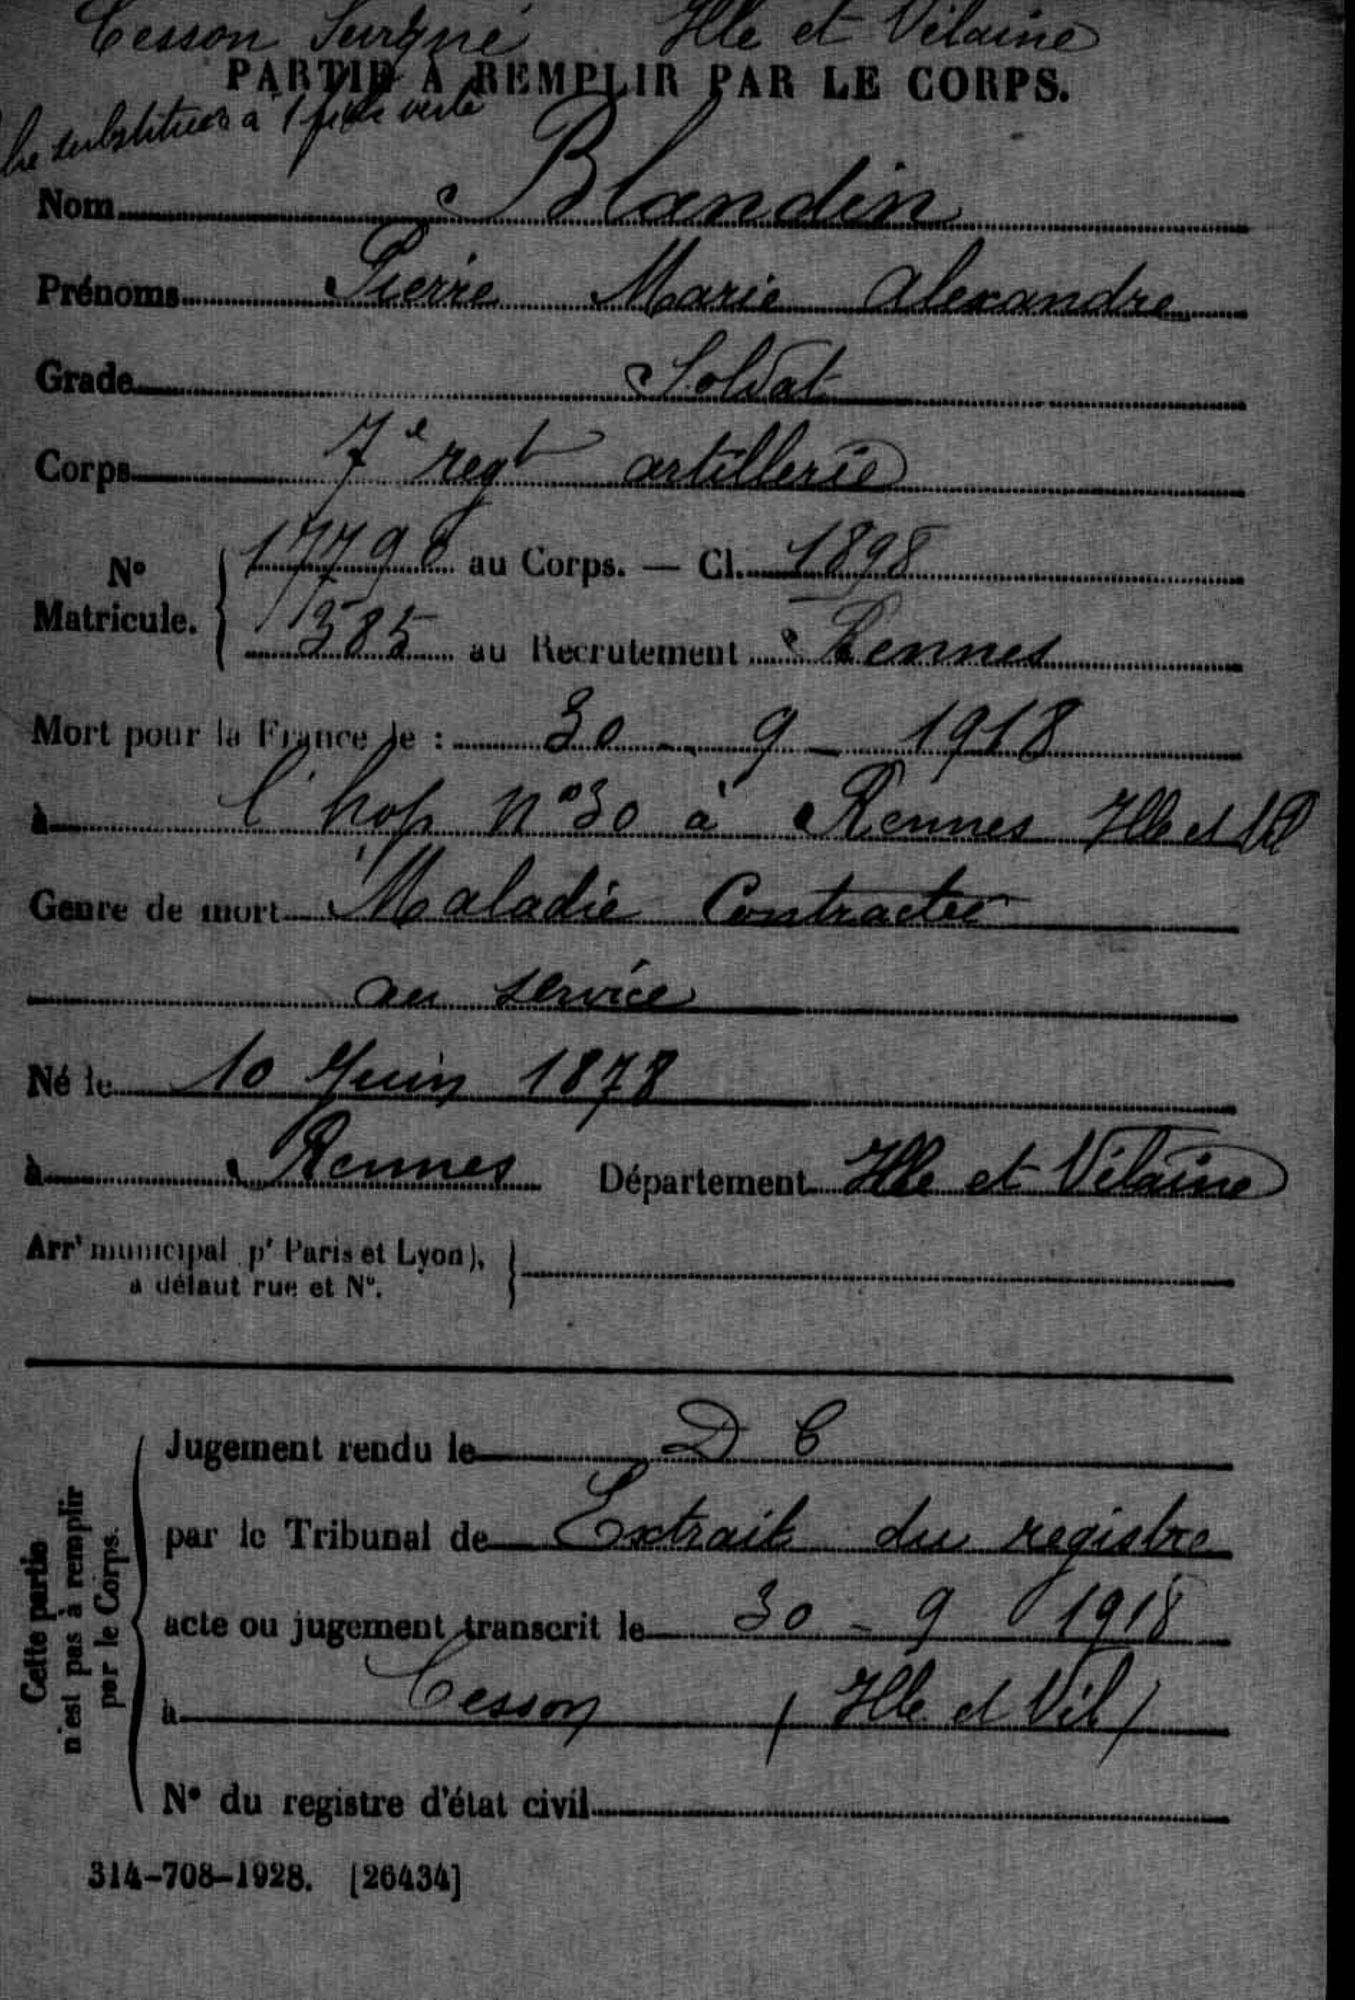 Cesson Sevigné Ille et Vilaine
PARTIE A REMPLIR PAR LE CORPS.
substituée à 1 fiche verte
Nom Blandin
Prénoms Pierre Marie Alexandre
Grade Soldat
Corps 7e regt artillerie
No Matricule. { 17798 au Corps. — Cl. 1898
385 au Recrutement Rennes
Mort pour la France le : 30 - 9 - 1918
à l'hop n°30 à Rennes Ille et Vil
Genre de mort Maladie Contractée
au service
Né le 10 Juin 1878
à Rennes Département Ille et Vilaine
Arrt municipal pr Paris et Lyon),
à défaut rue et N°.
Cette partie n'est pas à remplir par le Corps.
Jugement rendu le D C
par le Tribunal de Extrait du registre
acte ou jugement transcrit le 30 - 9 1918
à Cesson (Ille et Vil)
N° du registre d'état civil
314-708-1928. [26434]